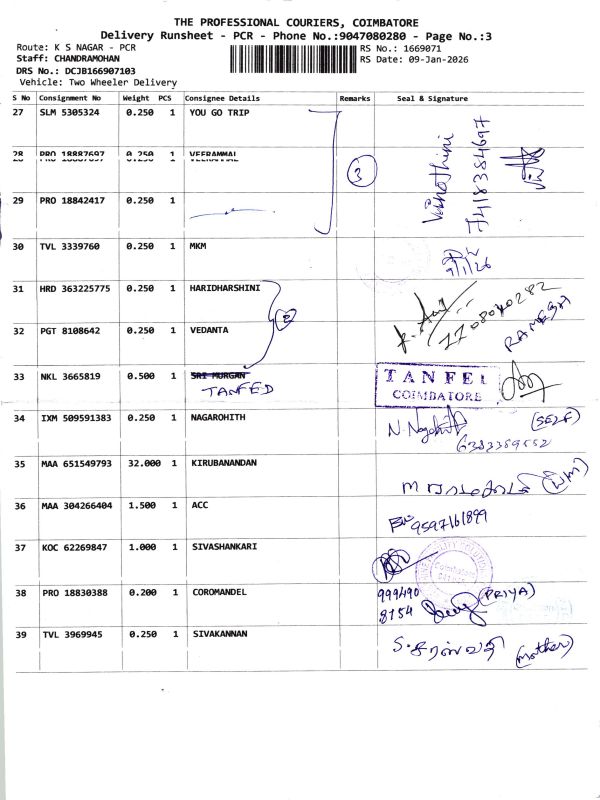 THE PROFESSIONAL COURIERS, COIMBATORE
Delivery Runsheet - PCR - Phone No.:9047080280 - Page No.:3
Route: K S NAGAR - PCR
RS No.: 1669071
Staff: CHANDRAMOHAN
RS Date: 09-Jan-2026
DRS No.: DCJB166907103
Vehicle: Two Wheeler Delivery
S No Consignment No Weight PCS Consignee Details Remarks Seal & Signature
27 SLM 5305324 0.250 1 YOU GO TRIP
28 PRO 18887697 0.250 1 VEERAMMAL
3
29 PRO 18842417 0.250 1
Vinothini
7418384697
30 TVL 3339760 0.250 1 MKM
9/1/26
31 HRD 363225775 0.250 1 HARIDHARSHINI
2
32 PGT 8108642 0.250 1 VEDANTA
RAMESH
33 NKL 3665819 0.500 1 SRI MURGAN
TANFED
TANFED
COIMBATORE
34 IXM 509591383 0.250 1 NAGAROHITH
N. Nagarohith (SELF)
6383389552
35 MAA 651549793 32.000 1 KIRUBANANDAN
36 MAA 304266404 1.500 1 ACC
9597161899
37 KOC 62269847 1.000 1 SIVASHANKARI
Coimbatore
38 PRO 18830388 0.200 1 COROMANDEL
999490
8154
(PRIYA)
39 TVL 3969945 0.250 1 SIVAKANNAN
S. சரஸ்வதி
(mother)